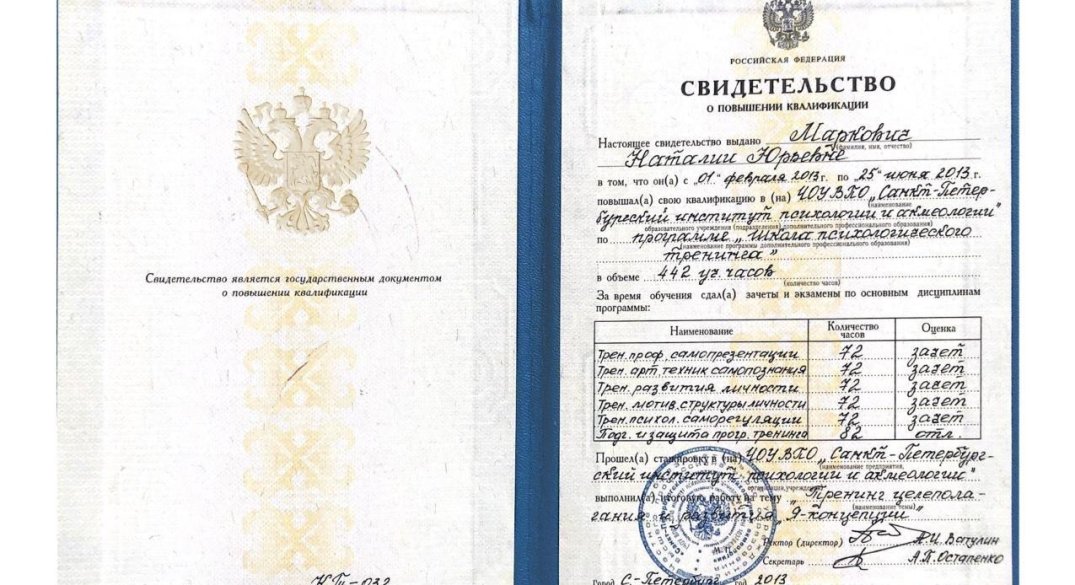 Свидетельство является государственным документом
о повышении квалификации
РОССИЙСКАЯ ФЕДЕРАЦИЯ
СВИДЕТЕЛЬСТВО
О ПОВЫШЕНИИ КВАЛИФИКАЦИИ
Настоящее свидетельство выдано Маркович
(фамилия, имя, отчество)
Наталии Юрьевне
в том, что он(а) с „01" февраля 2013 г. по „25" июня 2013 г.
повышал(а) свою квалификацию в (на) ЧОУ ВПО „Санкт-Петер-
(наименование
бургский институт психологии и акмеологии"
образовательного учреждения (подразделения) дополнительного профессионального образования)
по программе „Школа психологического
(наименование программы дополнительного профессионального образования)
тренинга"
в объеме 442 уч. часов
(количество часов)
За время обучения сдал(а) зачеты и экзамены по основным дисциплинам
программы:
Наименование Количество часов Оценка
Трен. проф. самопрезентации 72 зачет
Трен. арт. техник самопознания 72 зачет
Трен. развития личности 72 зачет
Трен. мотив. структуры личности 72 зачет
Трен. психол. саморегуляции 72 зачет
Подг. и защита прогр. тренинга 82 отл.
Прошел(а) стажировку в (на) ЧОУ ВПО „Санкт-Петербург-
(наименование предприятия,
ский институт психологии и акмеологии"
организации, учреждения)
выполнил(а) итоговую работу на тему „Тренинг целепола-
(наименование темы)
гания и развития „Я-концепции"
Ректор (директор) А.И. Вапулин
Секретарь А.П. Остапенко
Город С-Петербург год 2013